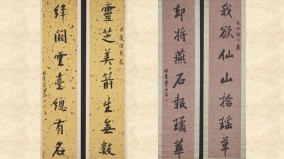 我欲仙山拾瑤草
却將燕石報璚華
靈芝美箭生無數
絳闕雲臺總有名